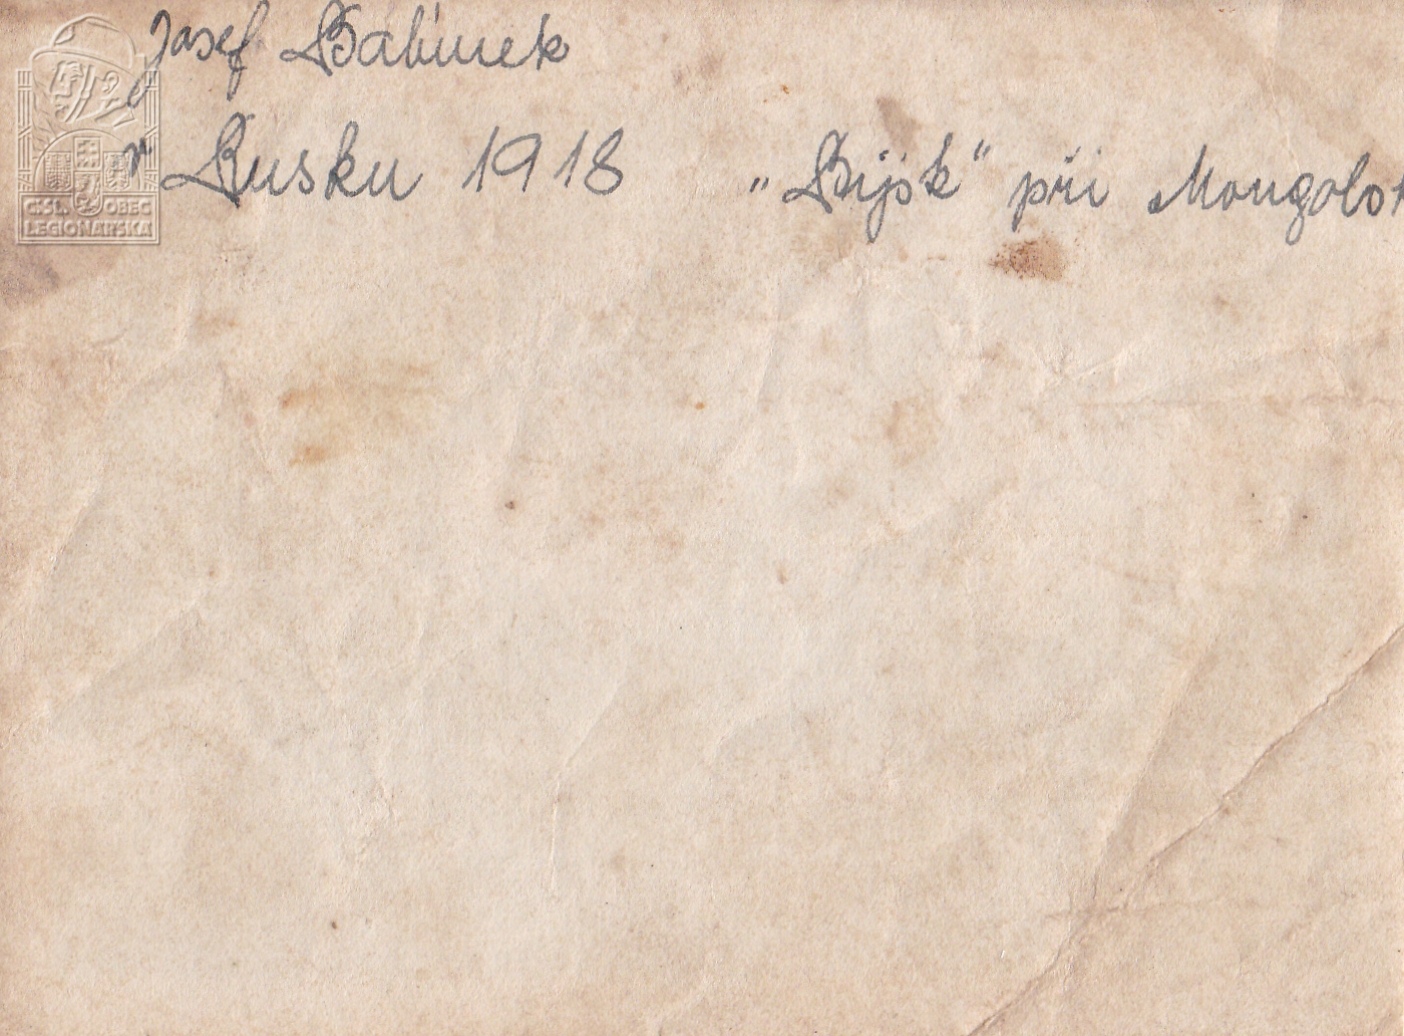 Josef
v Rusku 1918 „Bijsk" při Mongolsk
ČSL. OBEC
LEGIONÁŘSKÁ